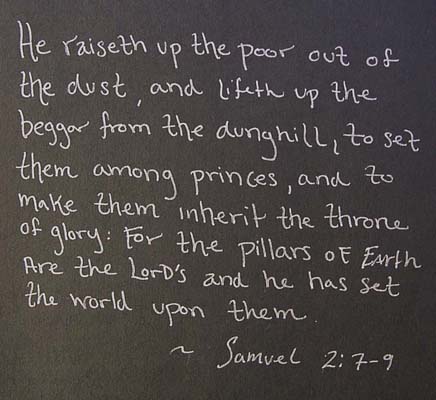 He raiseth up the poor out of
the dust, and lifeth up the
beggar from the dunghill, to set
them among princes, and to
make them inherit the throne
of glory: For the pillars of Earth
Are the LORD's and he has set
the world upon them.
~ Samuel 2:7-9